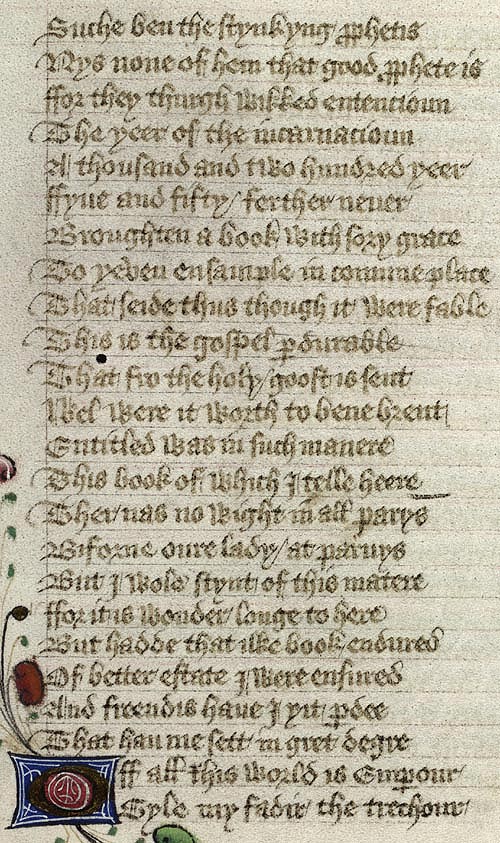 Suche ben the stynkyng prophetis
Nys none of hem that good prophete is
ffor they thurgh wikked entencioun
The yeer of the incarnacioun
A thousand and two hundred yeer
ffyue and fifty / ferther neuer
Broughten a book with sory grace
To yeuen ensample in comune place
That seide thus though it were fable
This is the gospel perdurable
That fro the holy goost is sent
Wel were it worth to bene brent
Entitled was in such manere
This book of which I telle heere
Ther nas no wight in all parys
Biforne oure lady / at paruys
But I wole stynt of this matere
ffor it is wonder longe to here
But hadde that ilke book endured
Of better estate I were ensured
And freendis haue I yit pardee
That han me sett in gret degre
Off all this world is Emperour
Gyle my fadir the trechour